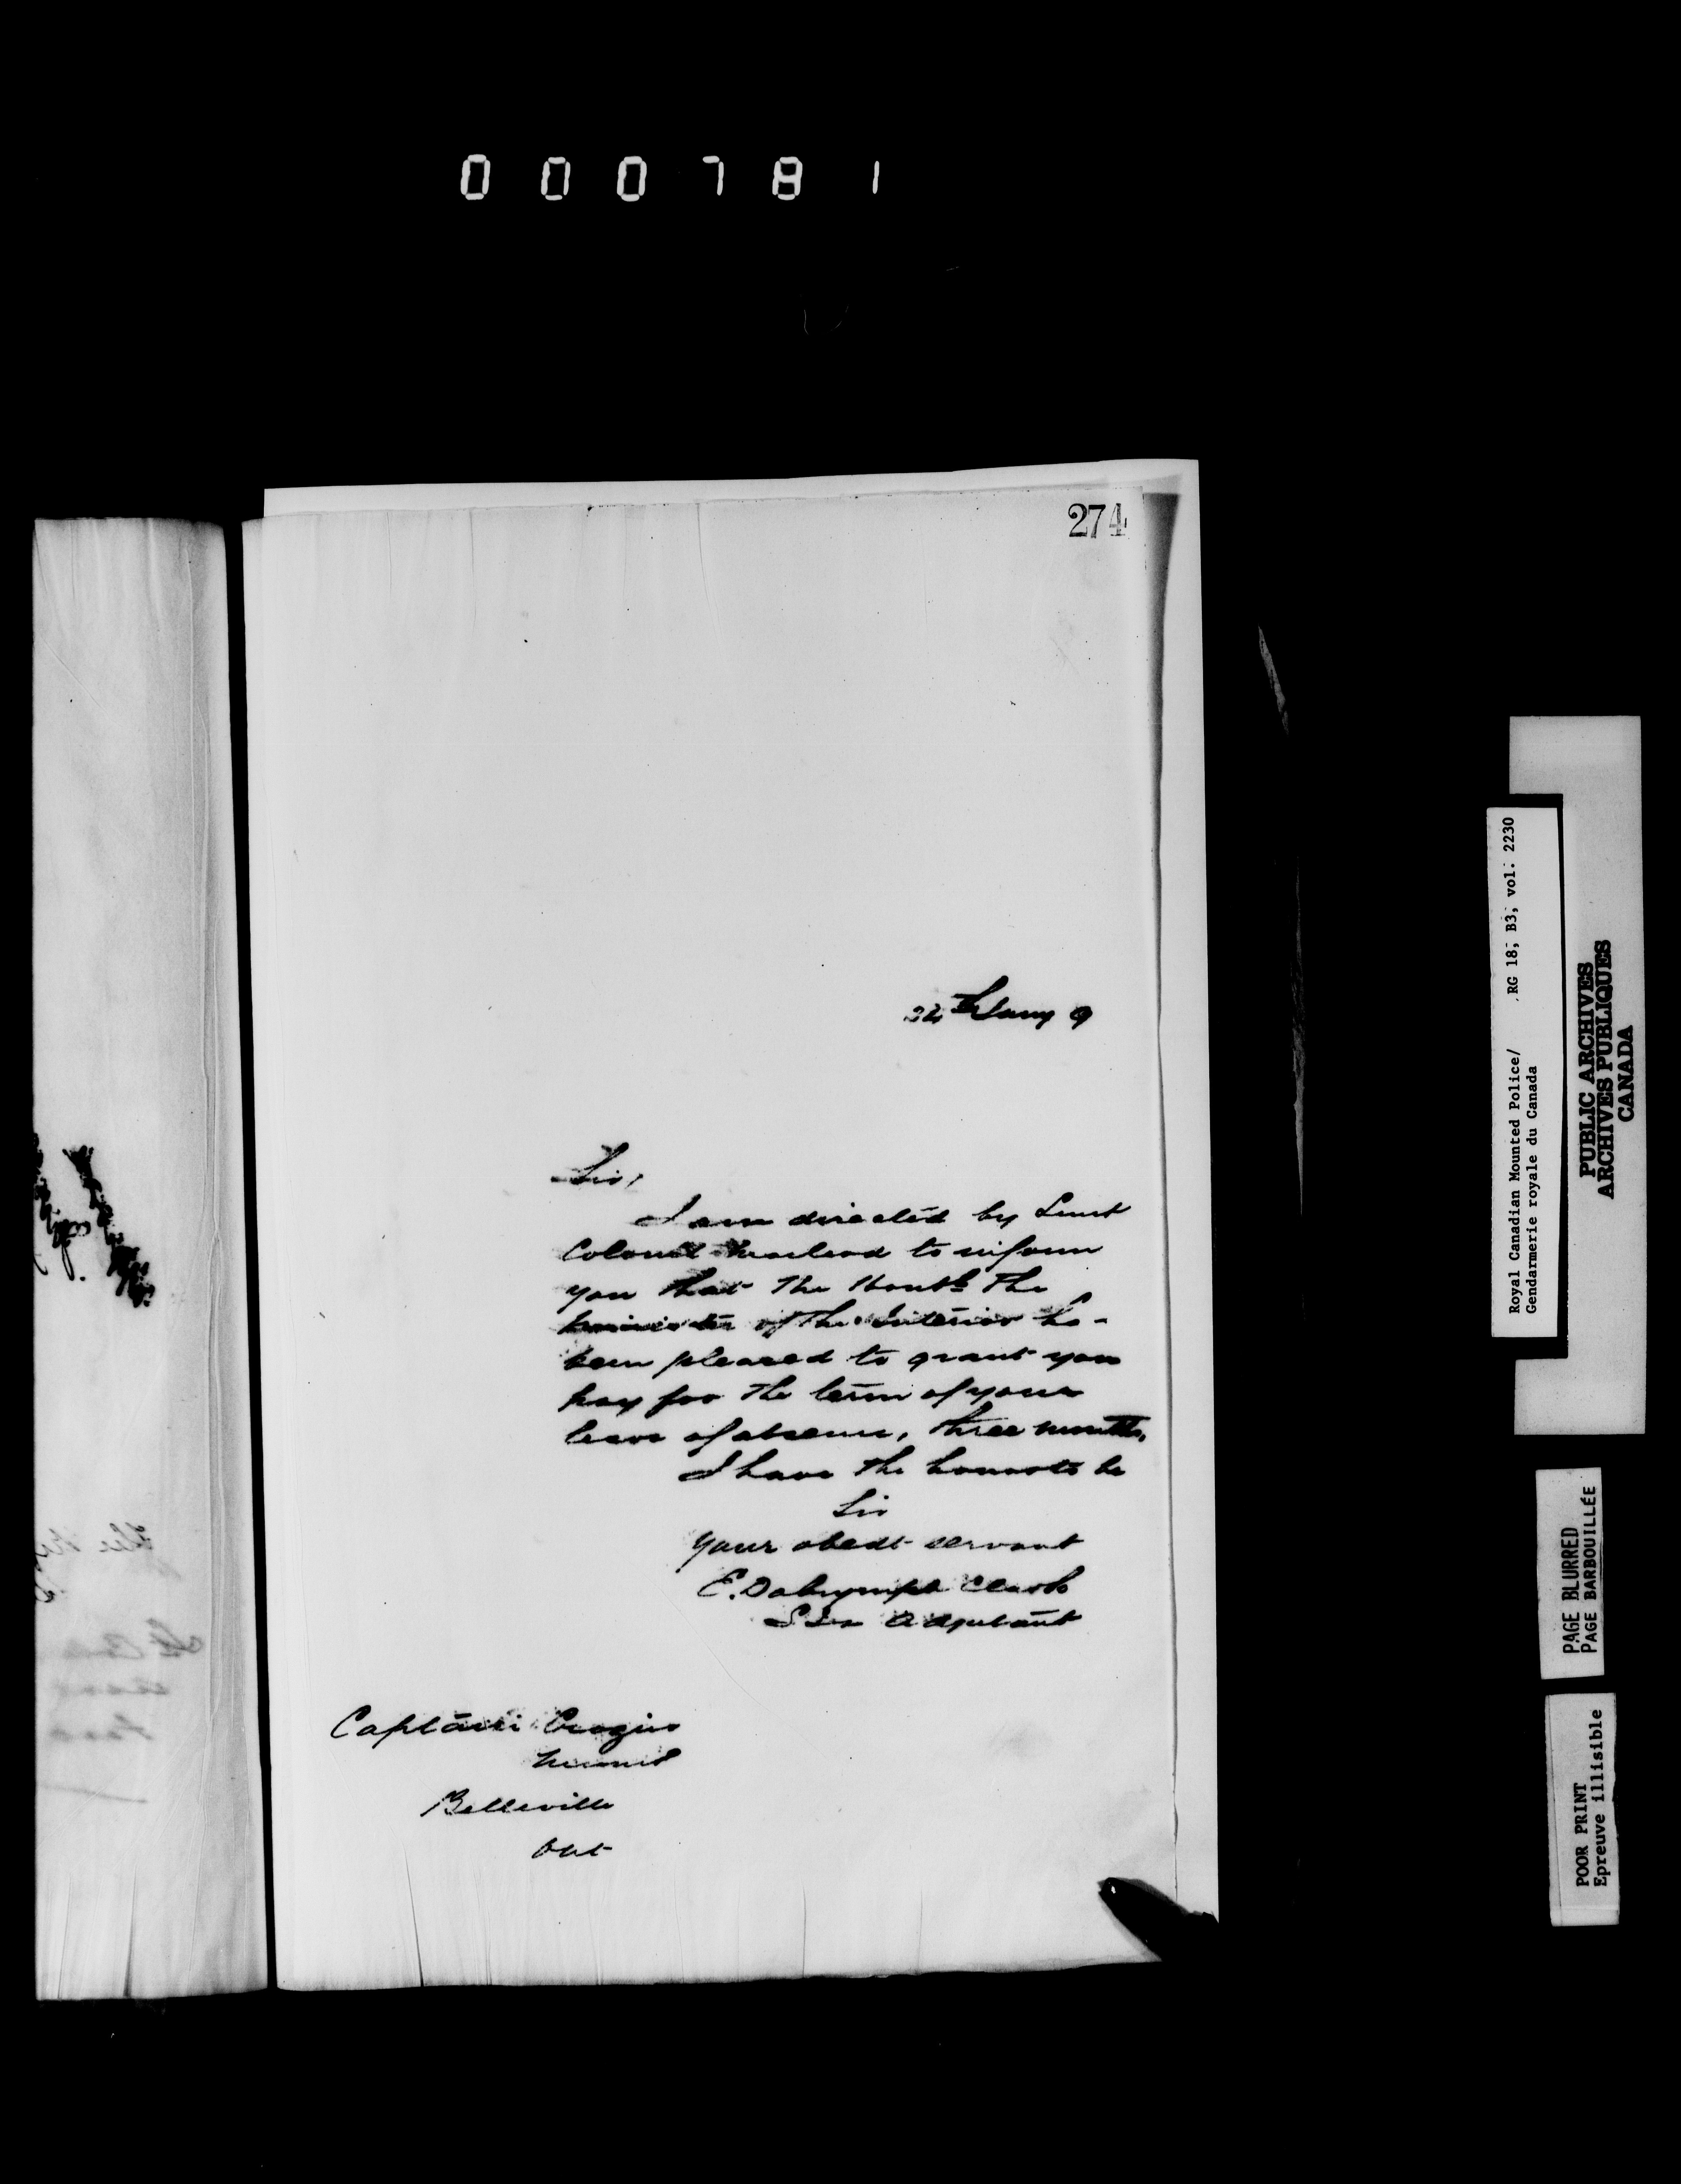 000781
274
24th Jany 9
Sir,
I am directed by Lieut
Colonel Macleod to inform
you that the Honble The
Minister of the Interior has
been pleased to grant you
pay for the term of your
leave of absence, three months.
I have the honor to be
Sir
Your obedt servant
E. Dalrymple Clark
Adjutant
Captain Crozier
Belleville
Ont
Royal Canadian Mounted Police/ RG 18, B3, vol. 2230
Gendarmerie royale du Canada
PUBLIC ARCHIVES
ARCHIVES PUBLIQUES
CANADA
PAGE BLURRED
PAGE BARBOUILLÉE
POOR PRINT
Epreuve illisible